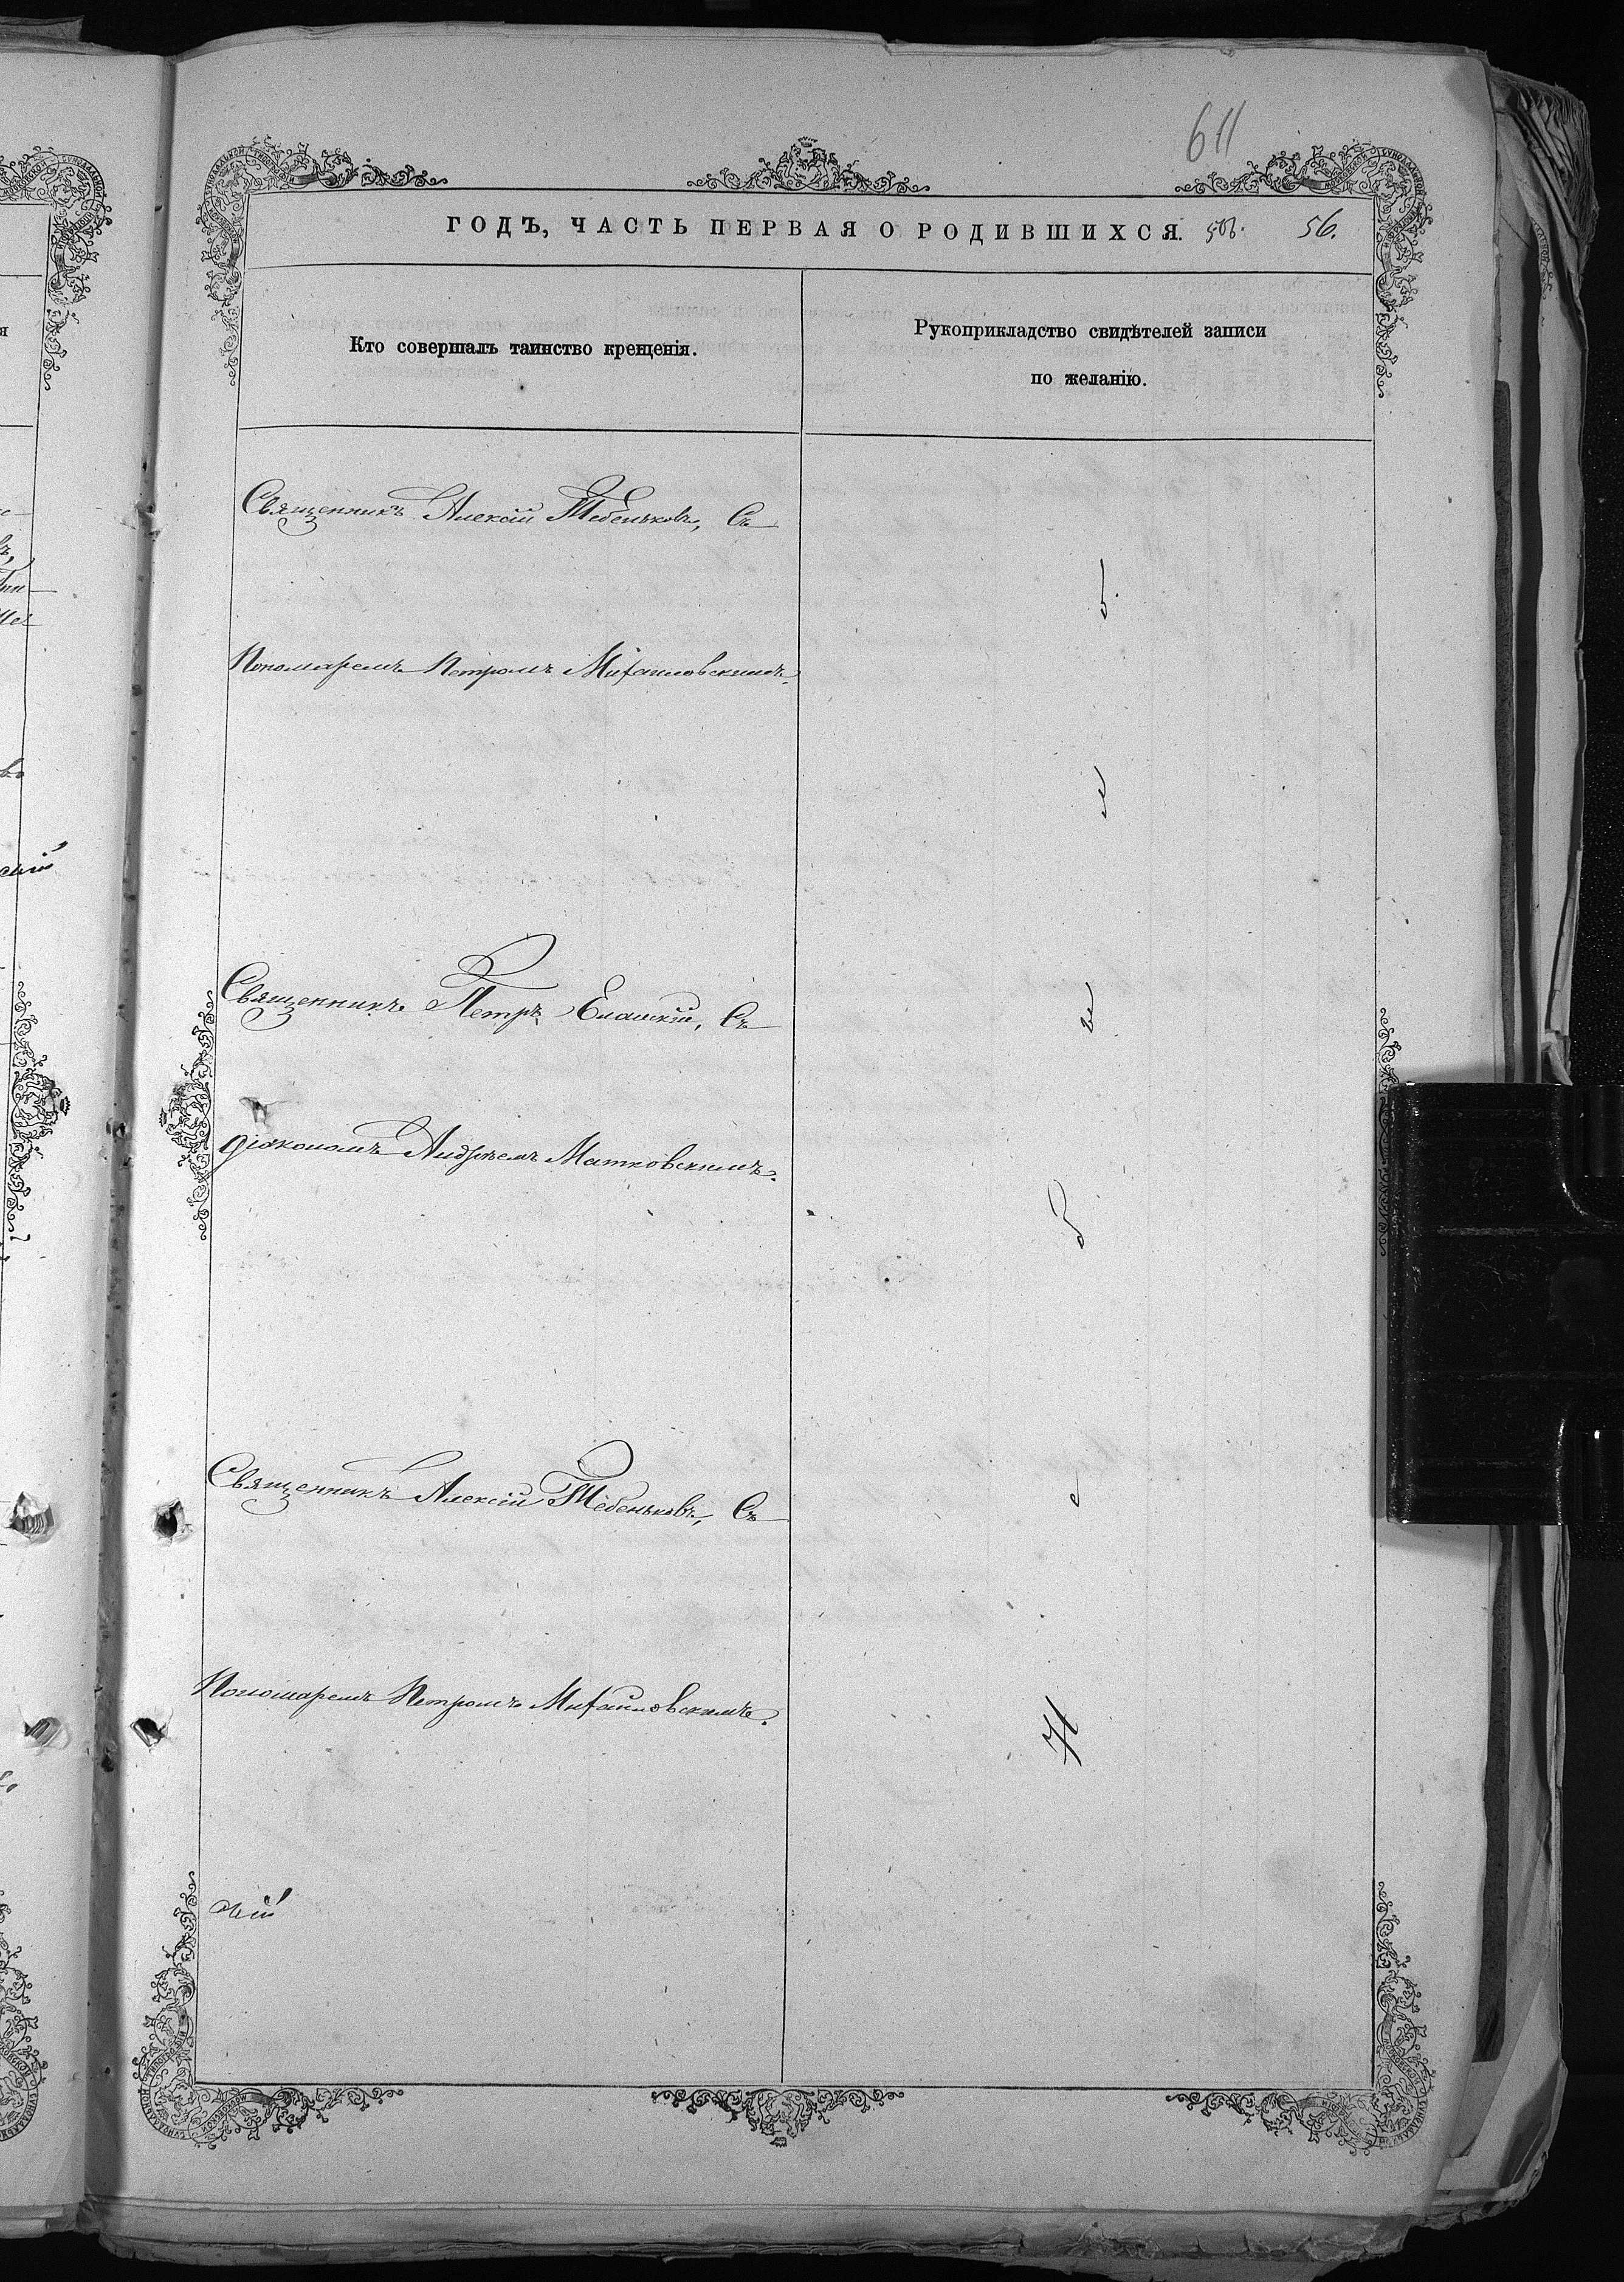 611
ГОДЪ, ЧАСТЬ ПЕРВАЯ О РОДИВШИХСЯ. 56.
Кто совершалъ таинство крещенія.
Рукоприкладство свидѣтелей записи
по желанію.
Священникъ Алексій Тебеньковъ, Съ
Пономаремъ Петромъ Михаиловскимъ.
Священникъ Петръ Съ
діакономъ Андреемъ Матковскимъ.
Священникъ Алексій Тебеньковъ, Съ
Пономаремъ Петромъ Михаиловскимъ.